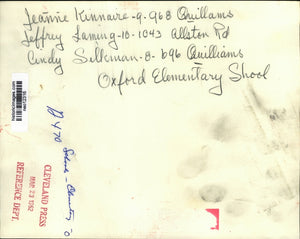 Jeannie Kinnaire-9-968 Quillams
Jeffrey Laming-10-1043 Allston Rd
Cindy Selkman-8-696 Quilliams
Oxford Elementary Shool
CLEVELAND PRESS
MAR 23 1962
REFERENCE DEPT.